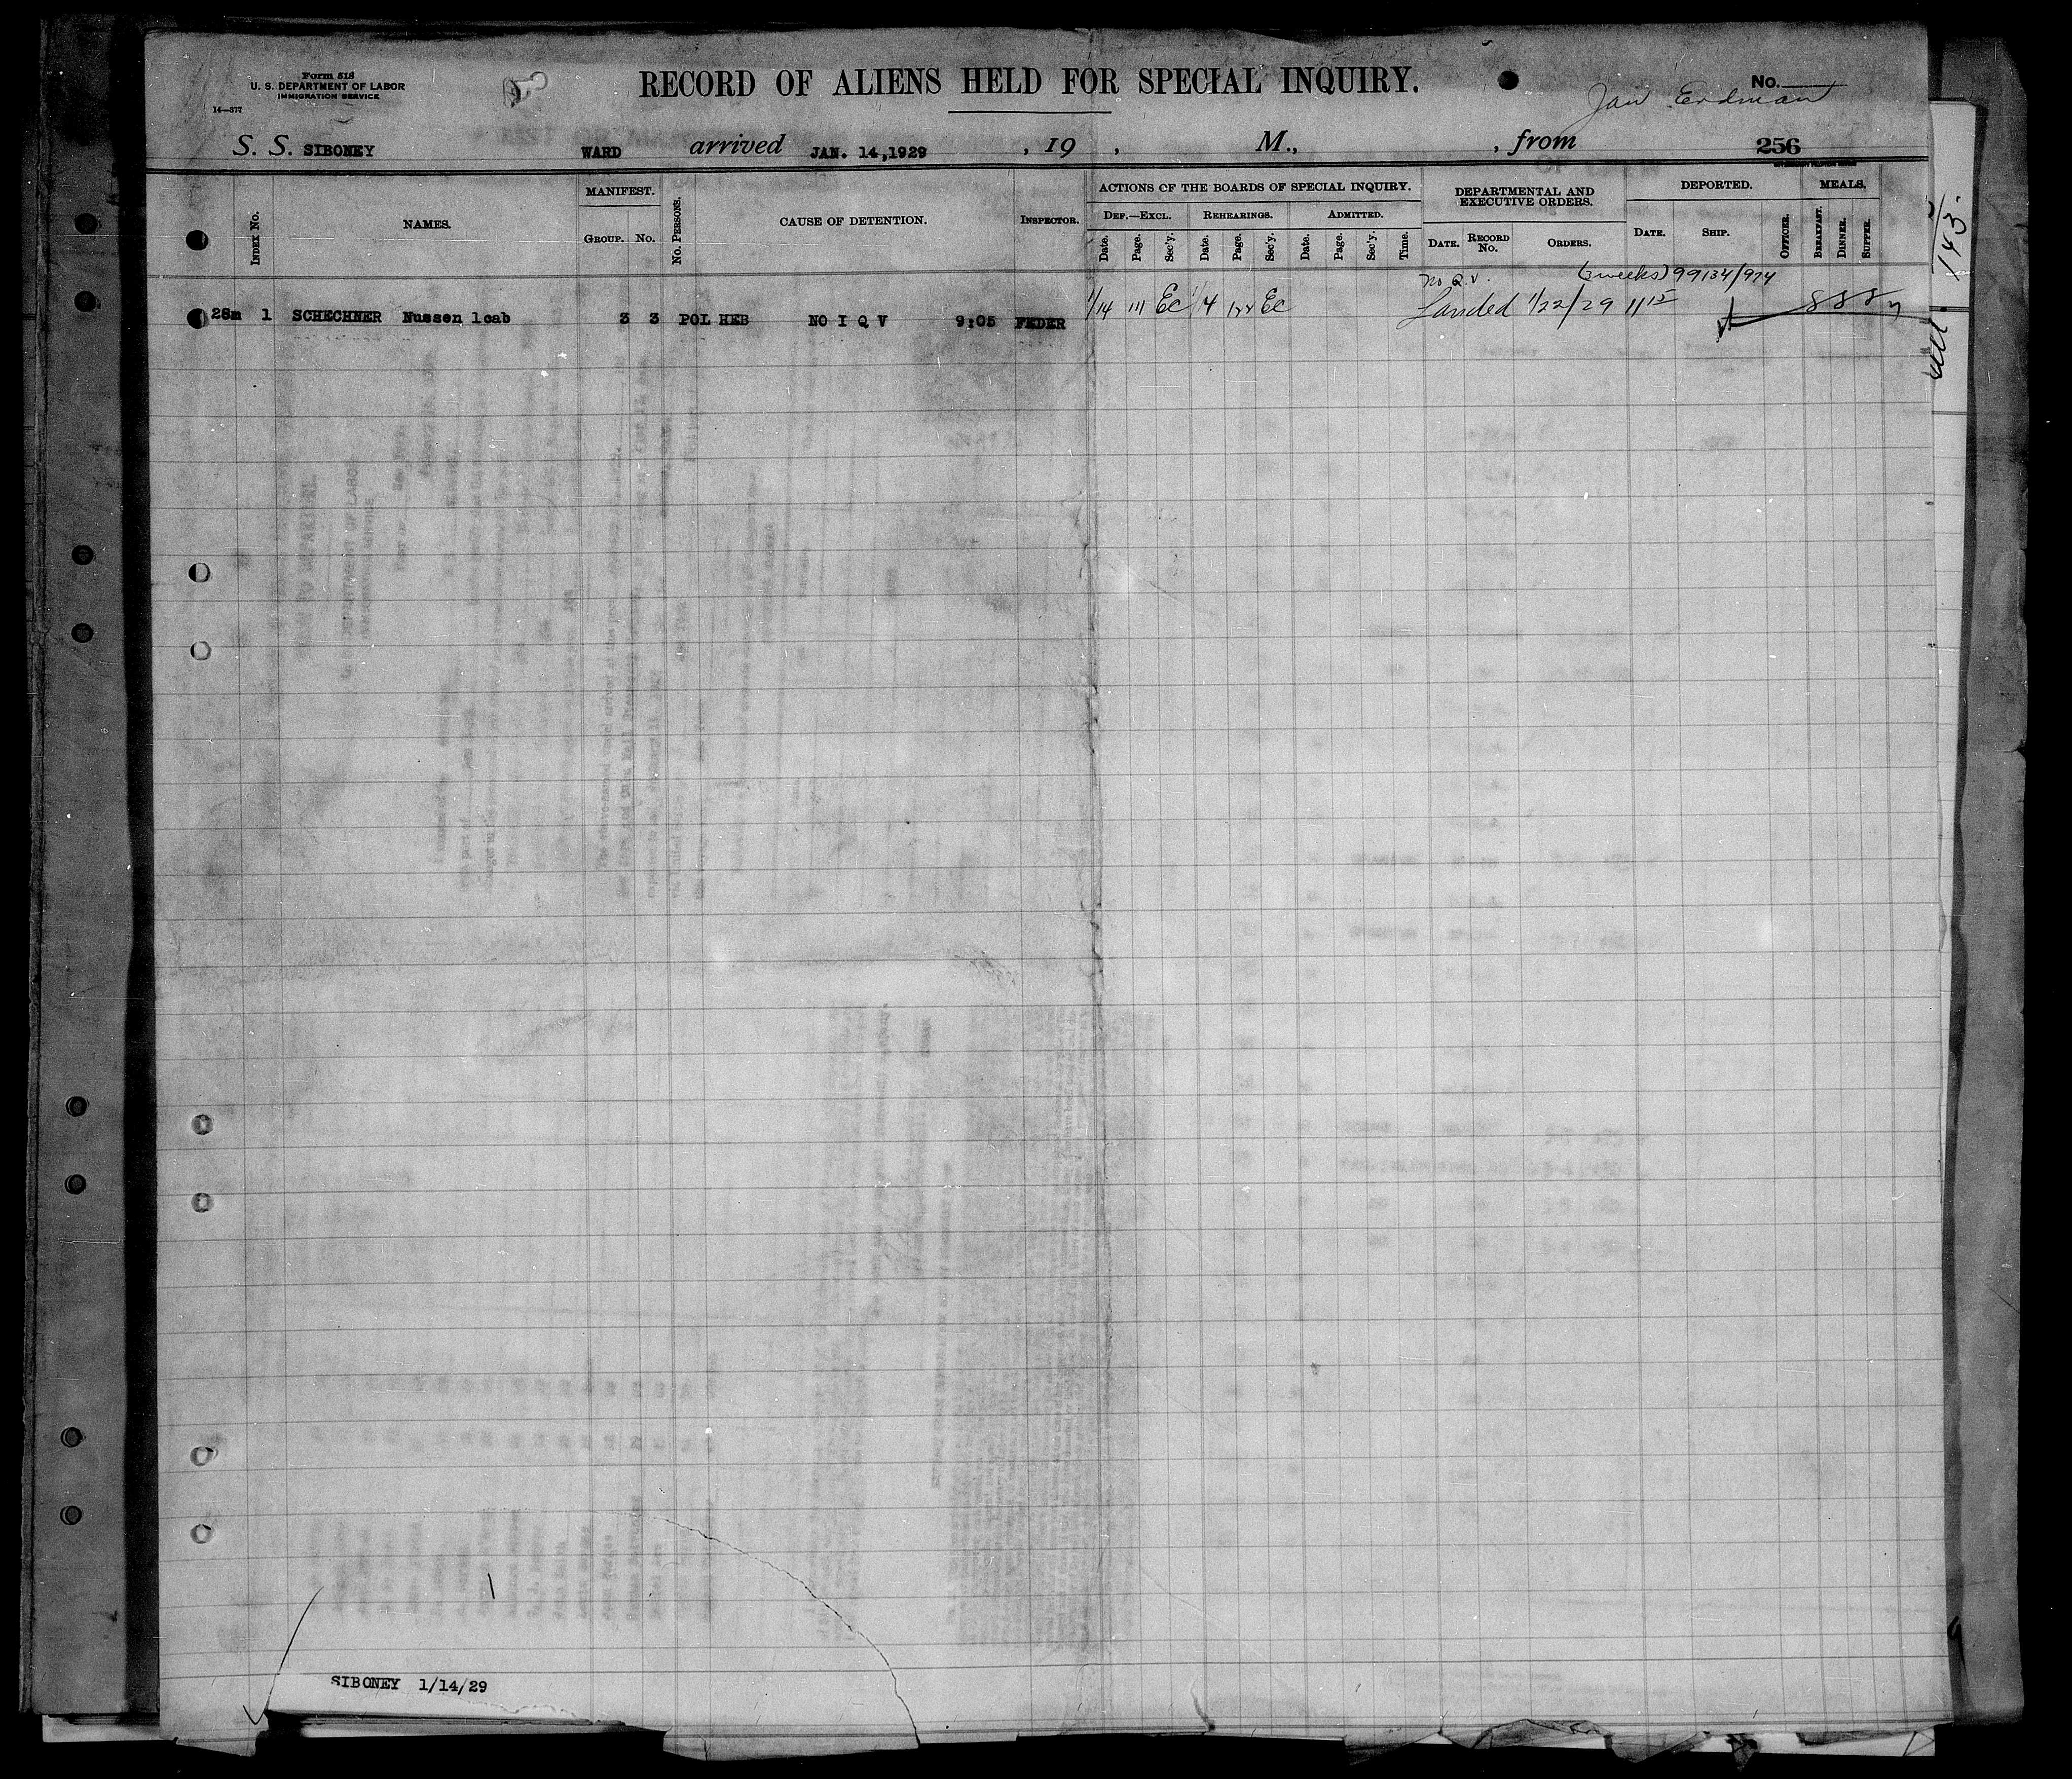 Form 518
U. S. DEPARTMENT OF LABOR
IMMIGRATION SERVICE
14—377
RECORD OF ALIENS HELD FOR SPECIAL INQUIRY.
No.
Jan Erdman
S. S. SIBONEY WARD arrived JAN. 14,1929 , 19 , M., , from 256
INDEX No. NAMES. MANIFEST. GROUP. No. No. PERSONS. CAUSE OF DETENTION. INSPECTOR.
ACTIONS OF THE BOARDS OF SPECIAL INQUIRY.
DEF.—EXCL. REHEARINGS. ADMITTED.
Date. Page. Sec'y. Date. Page. Sec'y. Date. Page. Sec'y. Time.
DEPARTMENTAL AND
EXECUTIVE ORDERS.
DATE. RECORD No. ORDERS.
DEPORTED.
DATE. SHIP. OFFICER.
MEALS.
BREAKFAST. DINNER. SUPPER.
No Q.V. (3 weeks) 99134/974
28m 1 SCHECHNER Nussen 1cab 3 3 POL HEB NO I Q V 9:05 FEDER 1/14 111 Ec 1/4 122 Ec Landed 1/22/29 11 15 8 8 8
143.
SIBONEY 1/14/29